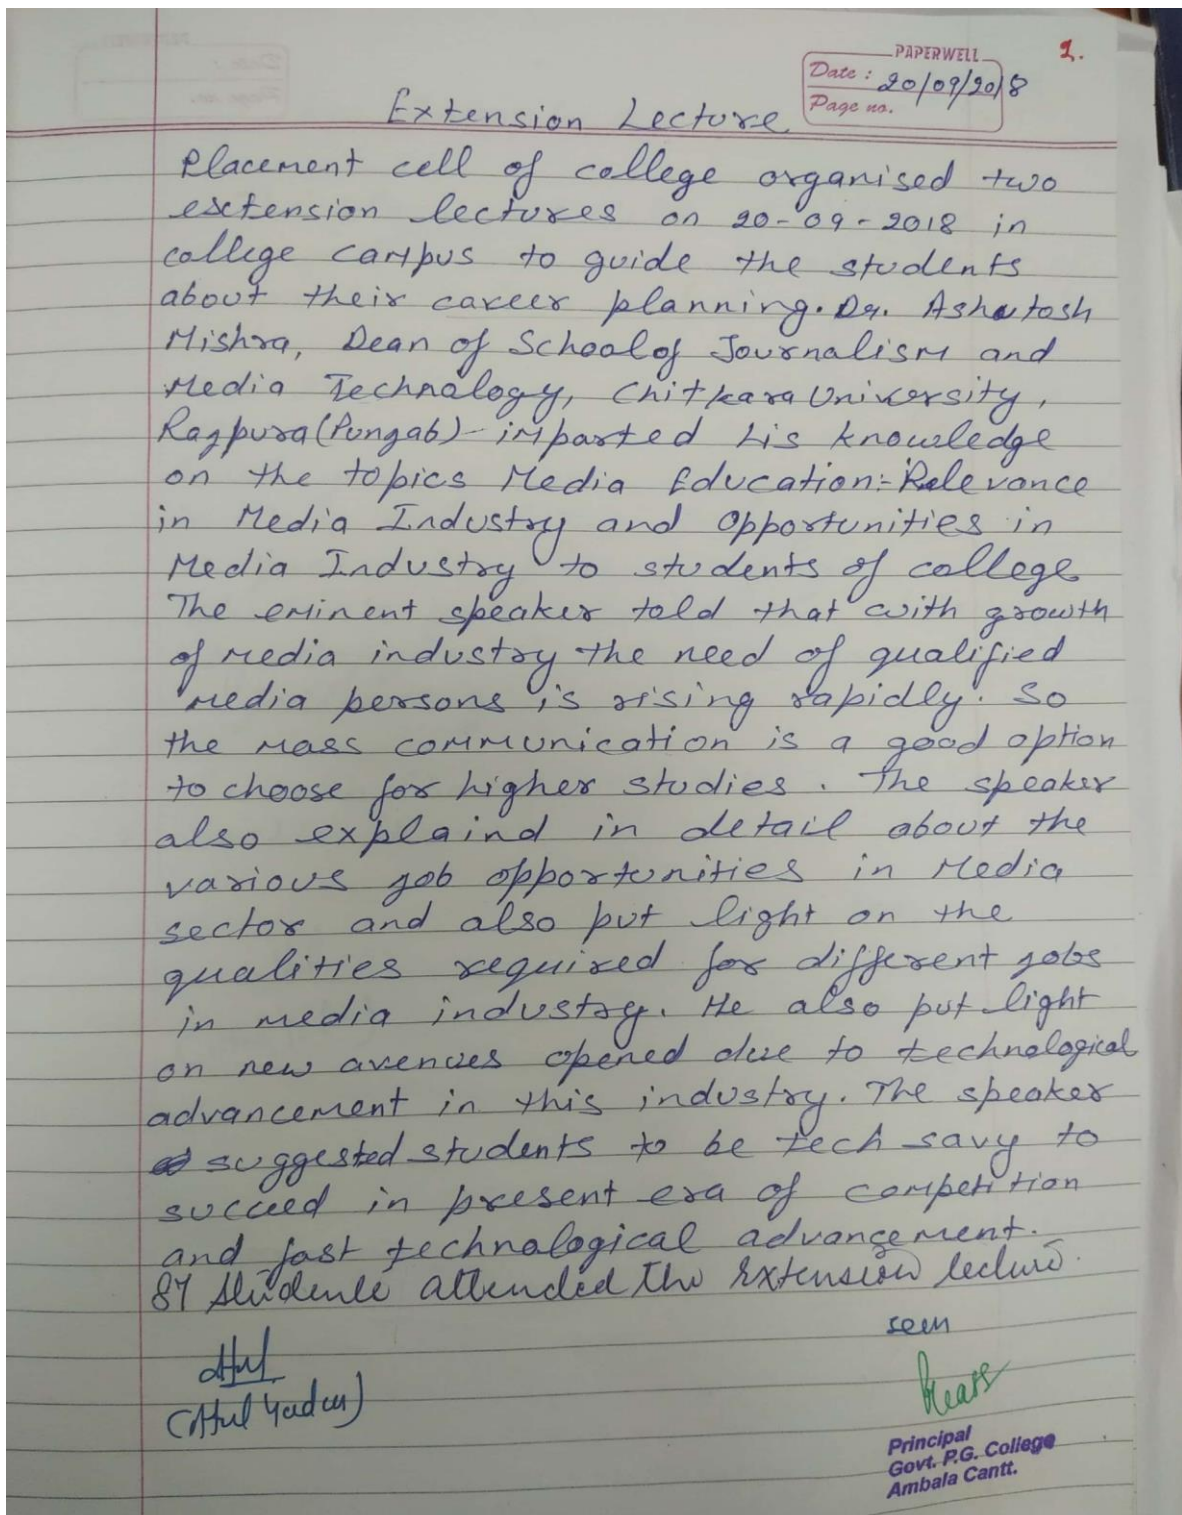 PAPERWELL
1.
Date : 20/09/2018
Page no.
Extension Lecture
Placement cell of college organised two
extension lectures on 20-09-2018 in
college campus to guide the students
about their career planning. Dr. Ashutosh
Mishra, Dean of School of Journalism and
Media Technology, Chitkara University,
Rajpura (Punjab) - imparted his knowledge
on the topics Media Education:- Relevance
in Media Industry and Opportunities in
Media Industry to students of college
The eminent speaker told that with growth
of media industry the need of qualified
media persons is rising rapidly. So
the mass communication is a good option
to choose for higher studies. The speaker
also explaind in detail about the
various job opportunities in Media
sector and also put light on the
qualities required for different jobs
in media industry. He also put light
on new avenues opened due to technological
advancement in this industry. The speaker
suggested students to be tech savy to
succeed in present era of competition
and fast technological advancement.
87 Students attended the extension lecture.
seen
(Atul Yadav)
Principal
Govt. P.G. College
Ambala Cantt.